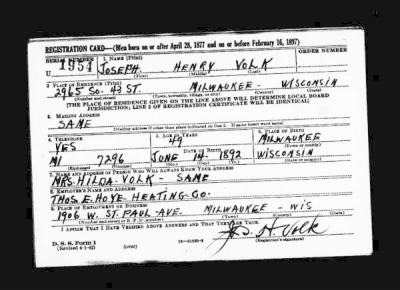 REGISTRATION CARD—(Men born on or after April 28, 1877 and on or before February 16, 1897)
SERIAL NUMBER 1. NAME (Print) ORDER NUMBER
U 1954 JOSEPH HENRY VOLK
(First) (Middle) (Last)
2. PLACE OF RESIDENCE (Print)
2965 SO. 43 ST. MILWAUKEE WISCONSIN
(Number and street) (Town, township, village, or city) (County) (State)
[THE PLACE OF RESIDENCE GIVEN ON THE LINE ABOVE WILL DETERMINE LOCAL BOARD
JURISDICTION; LINE 2 OF REGISTRATION CERTIFICATE WILL BE IDENTICAL]
3. MAILING ADDRESS
SAME
[Mailing address if other than place indicated on line 2. If same insert word same]
4. TELEPHONE 5. AGE IN YEARS 6. PLACE OF BIRTH
YES 49 MILWAUKEE
DATE OF BIRTH (Town or county)
MI 7296 JUNE 14 1892 WISCONSIN
(Exchange) (Number) (Mo.) (Day) (Yr.) (State or country)
7. NAME AND ADDRESS OF PERSON WHO WILL ALWAYS KNOW YOUR ADDRESS
MRS. HILDA - VOLK - SAME
8. EMPLOYER'S NAME AND ADDRESS
THOS. E. HOYE HEATING-CO.
9. PLACE OF EMPLOYMENT OR BUSINESS
1906 W. ST. PAUL-AVE. MILWAUKEE - WIS
(Number and street or R. F. D. number) (Town) (County) (State)
I AFFIRM THAT I HAVE VERIFIED ABOVE ANSWERS AND THAT THEY ARE TRUE.
D. S. S. Form 1
(Revised 4-1-42) (over) J. H. Volk
(Registrant's signature)